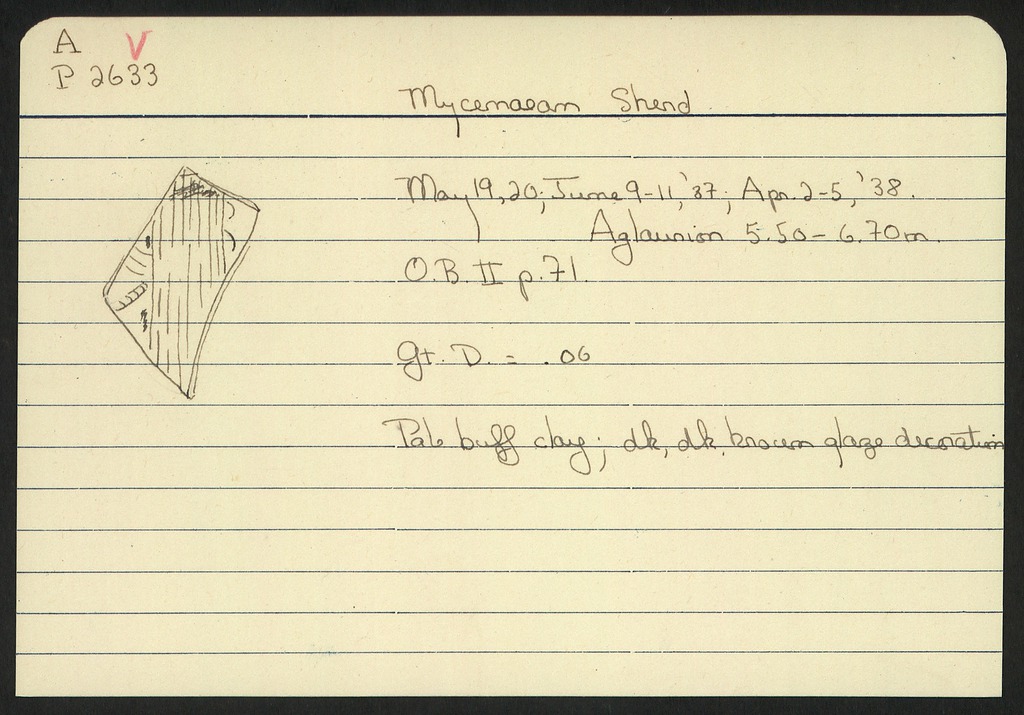 A V
P 2633
Mycenaean Sherd
May 19, 20; June 9-11, '37; Apr. 2-5, '38.
Aglaurion 5.50-6.70m.
O.B. II p.71.
Gt. D. = .06
Pale buff clay; dk, dk. brown glaze decoration